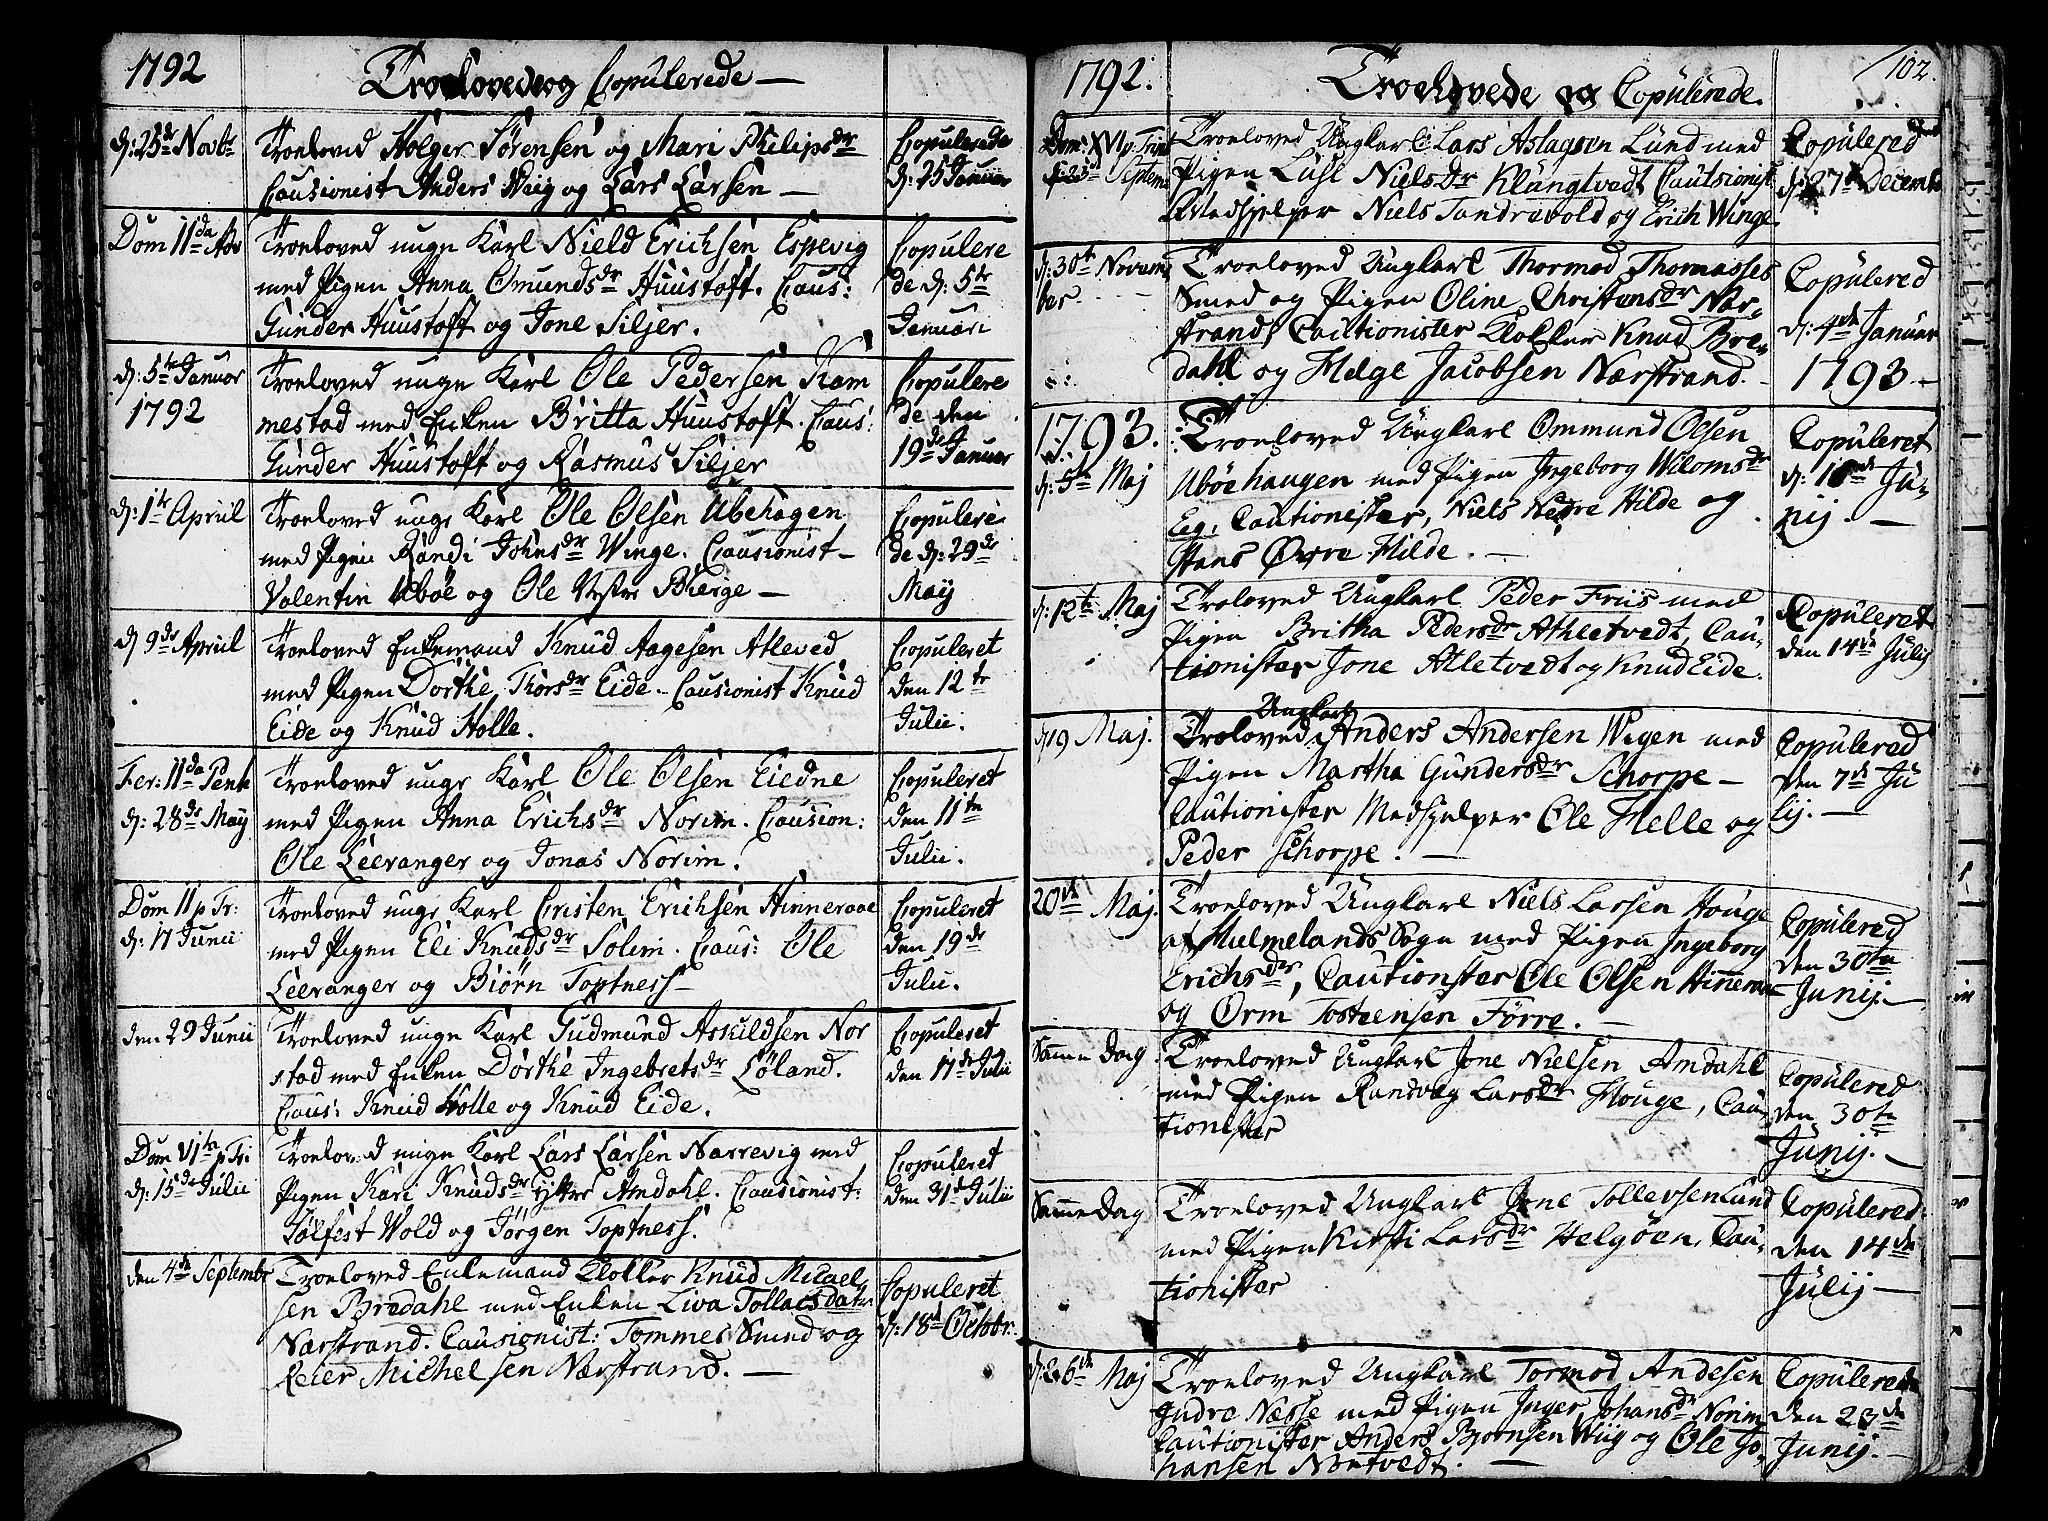 1792
Troelovede og Copulerede —
d: 25de Novbr
Troeloved Holger Sørensen og Mari Philipsdr
Causionist Anders Wiig og Lars Larsen —
Copulerede
d: 25 Januar
Dom 11da Adv
Troeloved unge Karl Nield Erichsen Espevig
med Pigen Anna Omundsdr Huustoft. Caus:
Gunder Huustoft og Jone Siljer.
Copulere
de d: 5te
Januari
d: 5te Januar
1792
Troeloved unge Karl Ole Pedersen Kam
mestad med Enken Britta Huustoft. Caus:
Gunder Huustoft og Rasmus Siljer
Copulere
de den
19de Januar
d: 1te Apriil
Troeloved unge Karl Ole Olsen Ubehagen
med Pigen Randi Johnsdr Winge. Causionist
Valentin Uböe og Ole Vestre Bierge —
Copulere
de d: 29de
Maÿ
d 9de Apriil
Troeloved Enkemand Knud Aagesen Atleved
med Pigen Dorthe Thorsdr Eide. Causionist Knud
Eide og Knud Holle.
Copuleret
den 12te
Julii.
Fer: 11da Pent
d: 28de Maÿ
Troeloved unge Karl Ole Olsen Eiedne
med Pigen Anna Erichsdr Norim. Causion:
Ole Leeranger og Jonas Norim.
Copuleret
den 11te
Julii.
Dom 11 p Tr:
d: 17 Junii
Troeloved unge Karl Cristen Erichsen Hinneraae
med Pigen Eli Knudsdr Solim. Caus: Ole
Leeranger og Biørn Toptness
Copuleret
den 19de
Julii.
den 29 Junii
Troeloved unge Karl Gudmund Asculdsen Nor
stad med Enken Dorthe Ingebretsdr Løland.
Caus: Knud Holle og Knud Eide.
Copuleret
den 17de Julii
Dom VIta p Tr:
d: 15de Julii
Troeloved unge Karl Lars Larsen Narrevig med
Pigen Kari Knudsdr Ytre Amdahl. Causionist:
Sølfest Wold og Jørgen Toptness.
Copuleret
den 31d Julii
den 4de Septembr
Troeloved Enkemand Klokker Knud Micael
sen Bredahl med Enken Liva Tollacsdatr
Narstrand. Causionist: Tommes Smed og
Reier Michelsen Nærstrand. —
Copuleret
d: 18d Octobr.
1792.
Troelovede og Copulerede.
102.
Dom: XVI p. Trinit
d: 23d Septemb
Troeloved Ungkarl Lars Aslagsen Lund med
Pigen Lusl Nielsdr Klungtvedt Cautionist
Medhjelper Niels Tandravold og Erich Winge.
Copulered
d: 27de Decembr
d: 30te Novem
ber
Troeloved Ungkarl Thormod Thomasses
Smed og Pigen Oline Christensdr Nær-
strand, Cautionister Klokker Knud Bre-
dahl og Helge Jacobsen Nærstrand. -
Copulered
d: 4de Januar
1793 —
1793.
d: 5te Maj
Troeloved Ungkarl Ommund Olsen
Ubøehaugen med Pigen Ingeborg Wilomsdr
Eeg, Cautionister, Niels Nedre Hilde og
Hans Øvre Hilde. —
Copuleret
d: 16de Ju-
nij. —
d: 12te Maj
Troeloved Ungkarl Peder Friis med
Pigen Britha Pedersdr Athletvedt, Cau-
tionister Jone Atletvedt og Knud Eide.
Copuleret
den 14de Julij
d 19 Maj.
Ungkarl
Troeloved Anders Andersen Wigen med
Pigen Martha Gundersdr Schorpe —
Cautionister Medhjelper Ole Helle og
Peder Schorpe. —
Copulerad
den 7de Ju
lij. —
20de Maj.
Troeloved Ungkarl Niels Larsen Houge
af Hielmelands Sogn med Pigen Ingeborg
Erichsdr, Cautionster Ole Olsen Hinneraae
og Orm Tosteensen Förre. —
Copulered
den 30te
Junij. —
Samme Dag
Troeloved Ungkarl Jone Nielsen Amdahl
med Pigen Randvæg Larsdr Houge, Cau-
tionister
Copulered
den 30te
Junij. —
Samme Dag
Troeloved Ungkarl Jone Tollevsen Lund
med Pigen Kirsti Larsdr Helgöen, Cau-
tionister
Copulered:
den 14de
Julij —
d: 26de Maj
Troeloved Ungkarl Tormod Andesen
Indre Næsse med Pigen Inger Johansdr Norim
Cautionister Anders Bjornsen Wiig og Ole Jo-
hansen Nontvedt. —
Copulered
den 23de
Junij. —